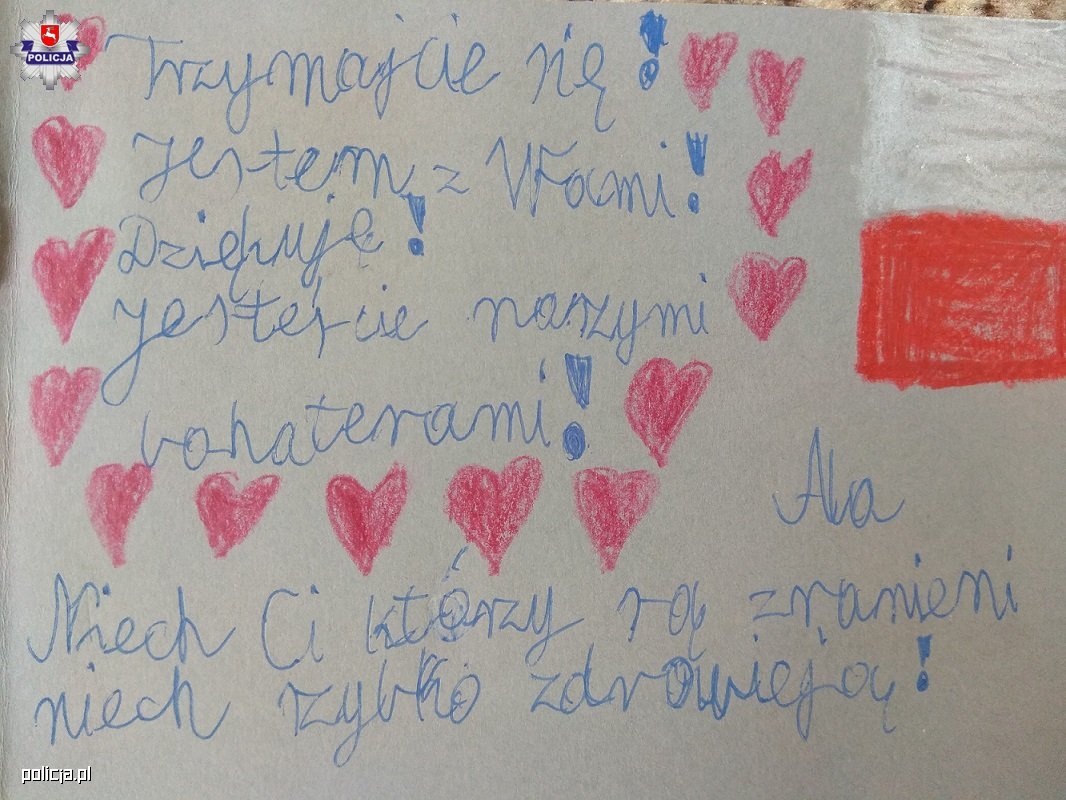 POLICJA
Trzymajcie się!
Jestem z Wami!
Dziękuję!
jesteście naszymi
bohaterami!
Ala
Niech Ci którzy są zranieni
niech szybko zdrowieją!
policja.pl